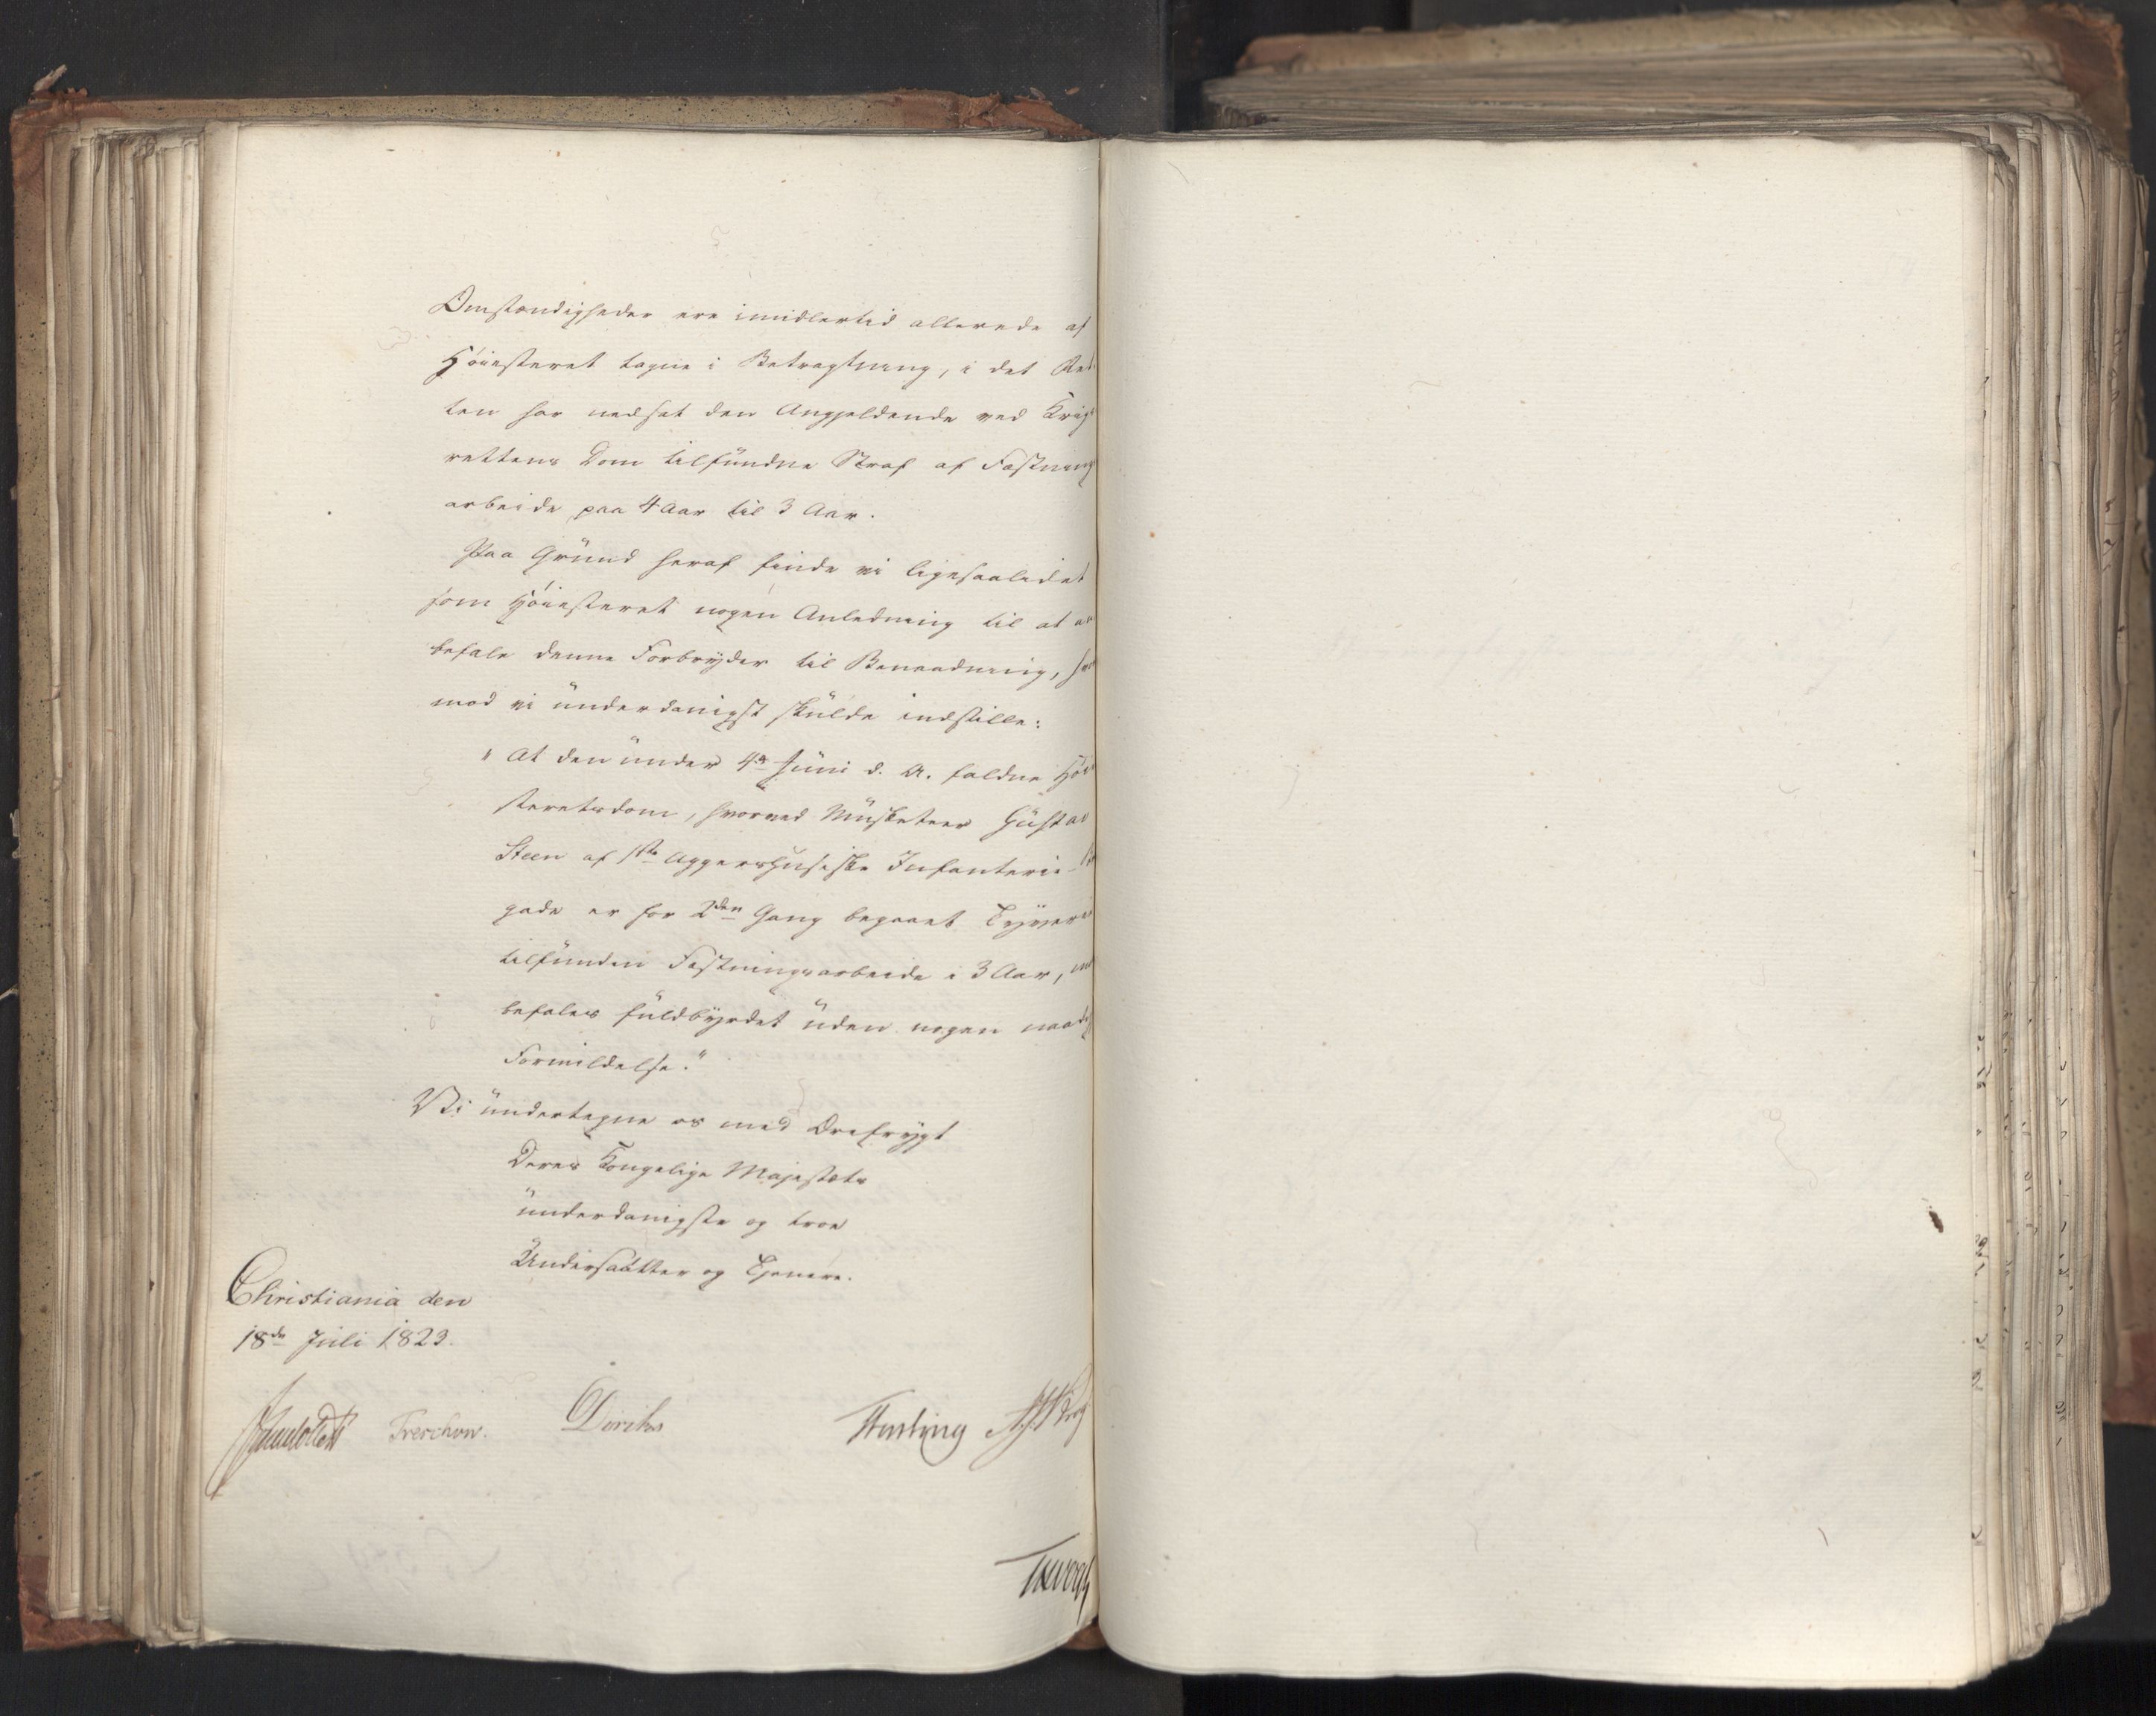 Omstændigheder ere imidlertid allerede af
Høiesteret tagne i Betragtning, i det Ret-
ten har nedsat den Angjeldende ved Krigs
rettens Dom tilfundne Straf af Fæstnings
arbeide paa 4 Aar til 3 Aar.
Paa Grund heraf finde vi ligesaalidet
som Høiesteret nogen Anledning til at an
befale denne Forbryder til Benaadning, hvor
mod vi underdanigst skulde indstille:
"At den under 4de Juni d. A. faldne Høie
steretsdom, hvorved Musketeer Gustav
Steen af 1ste Aggershusiske Infanterie-Bri
gade er for 2den Gang begaaet Tyverie
tilfunden Fæstningsarbeide i 3 Aar, an
befales fuldbyrdet uden nogen naadig
Formildelse."
Vi undertegne os med Ærefrygt
Deres Kongelige Majestæts
underdanigste og troe
Undersaatter og Tjenere.
Christiania den
18de Juli 1823.
Treschow. Diriks